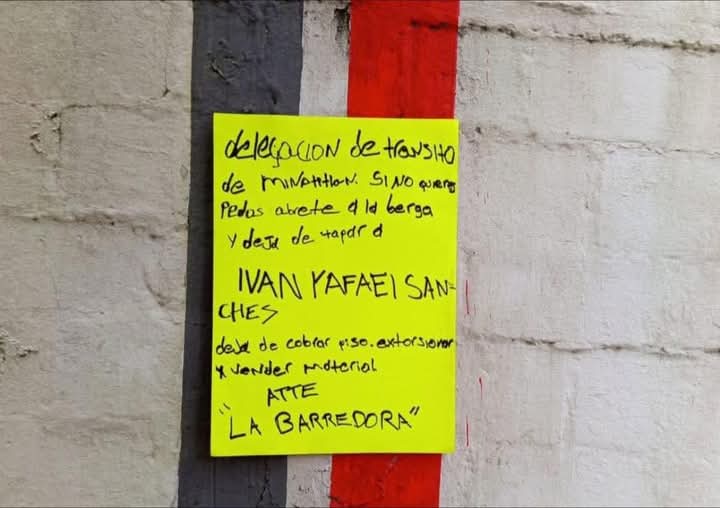 delegacion de transito
de minatitlan. si no quieres
pedos abrete a la berga
y deja de tapar a
IVAN YAFAEI SAN-
CHES
deja de cobrar piso. extorsionar
y vender material
ATTE
"LA BARREDORA"